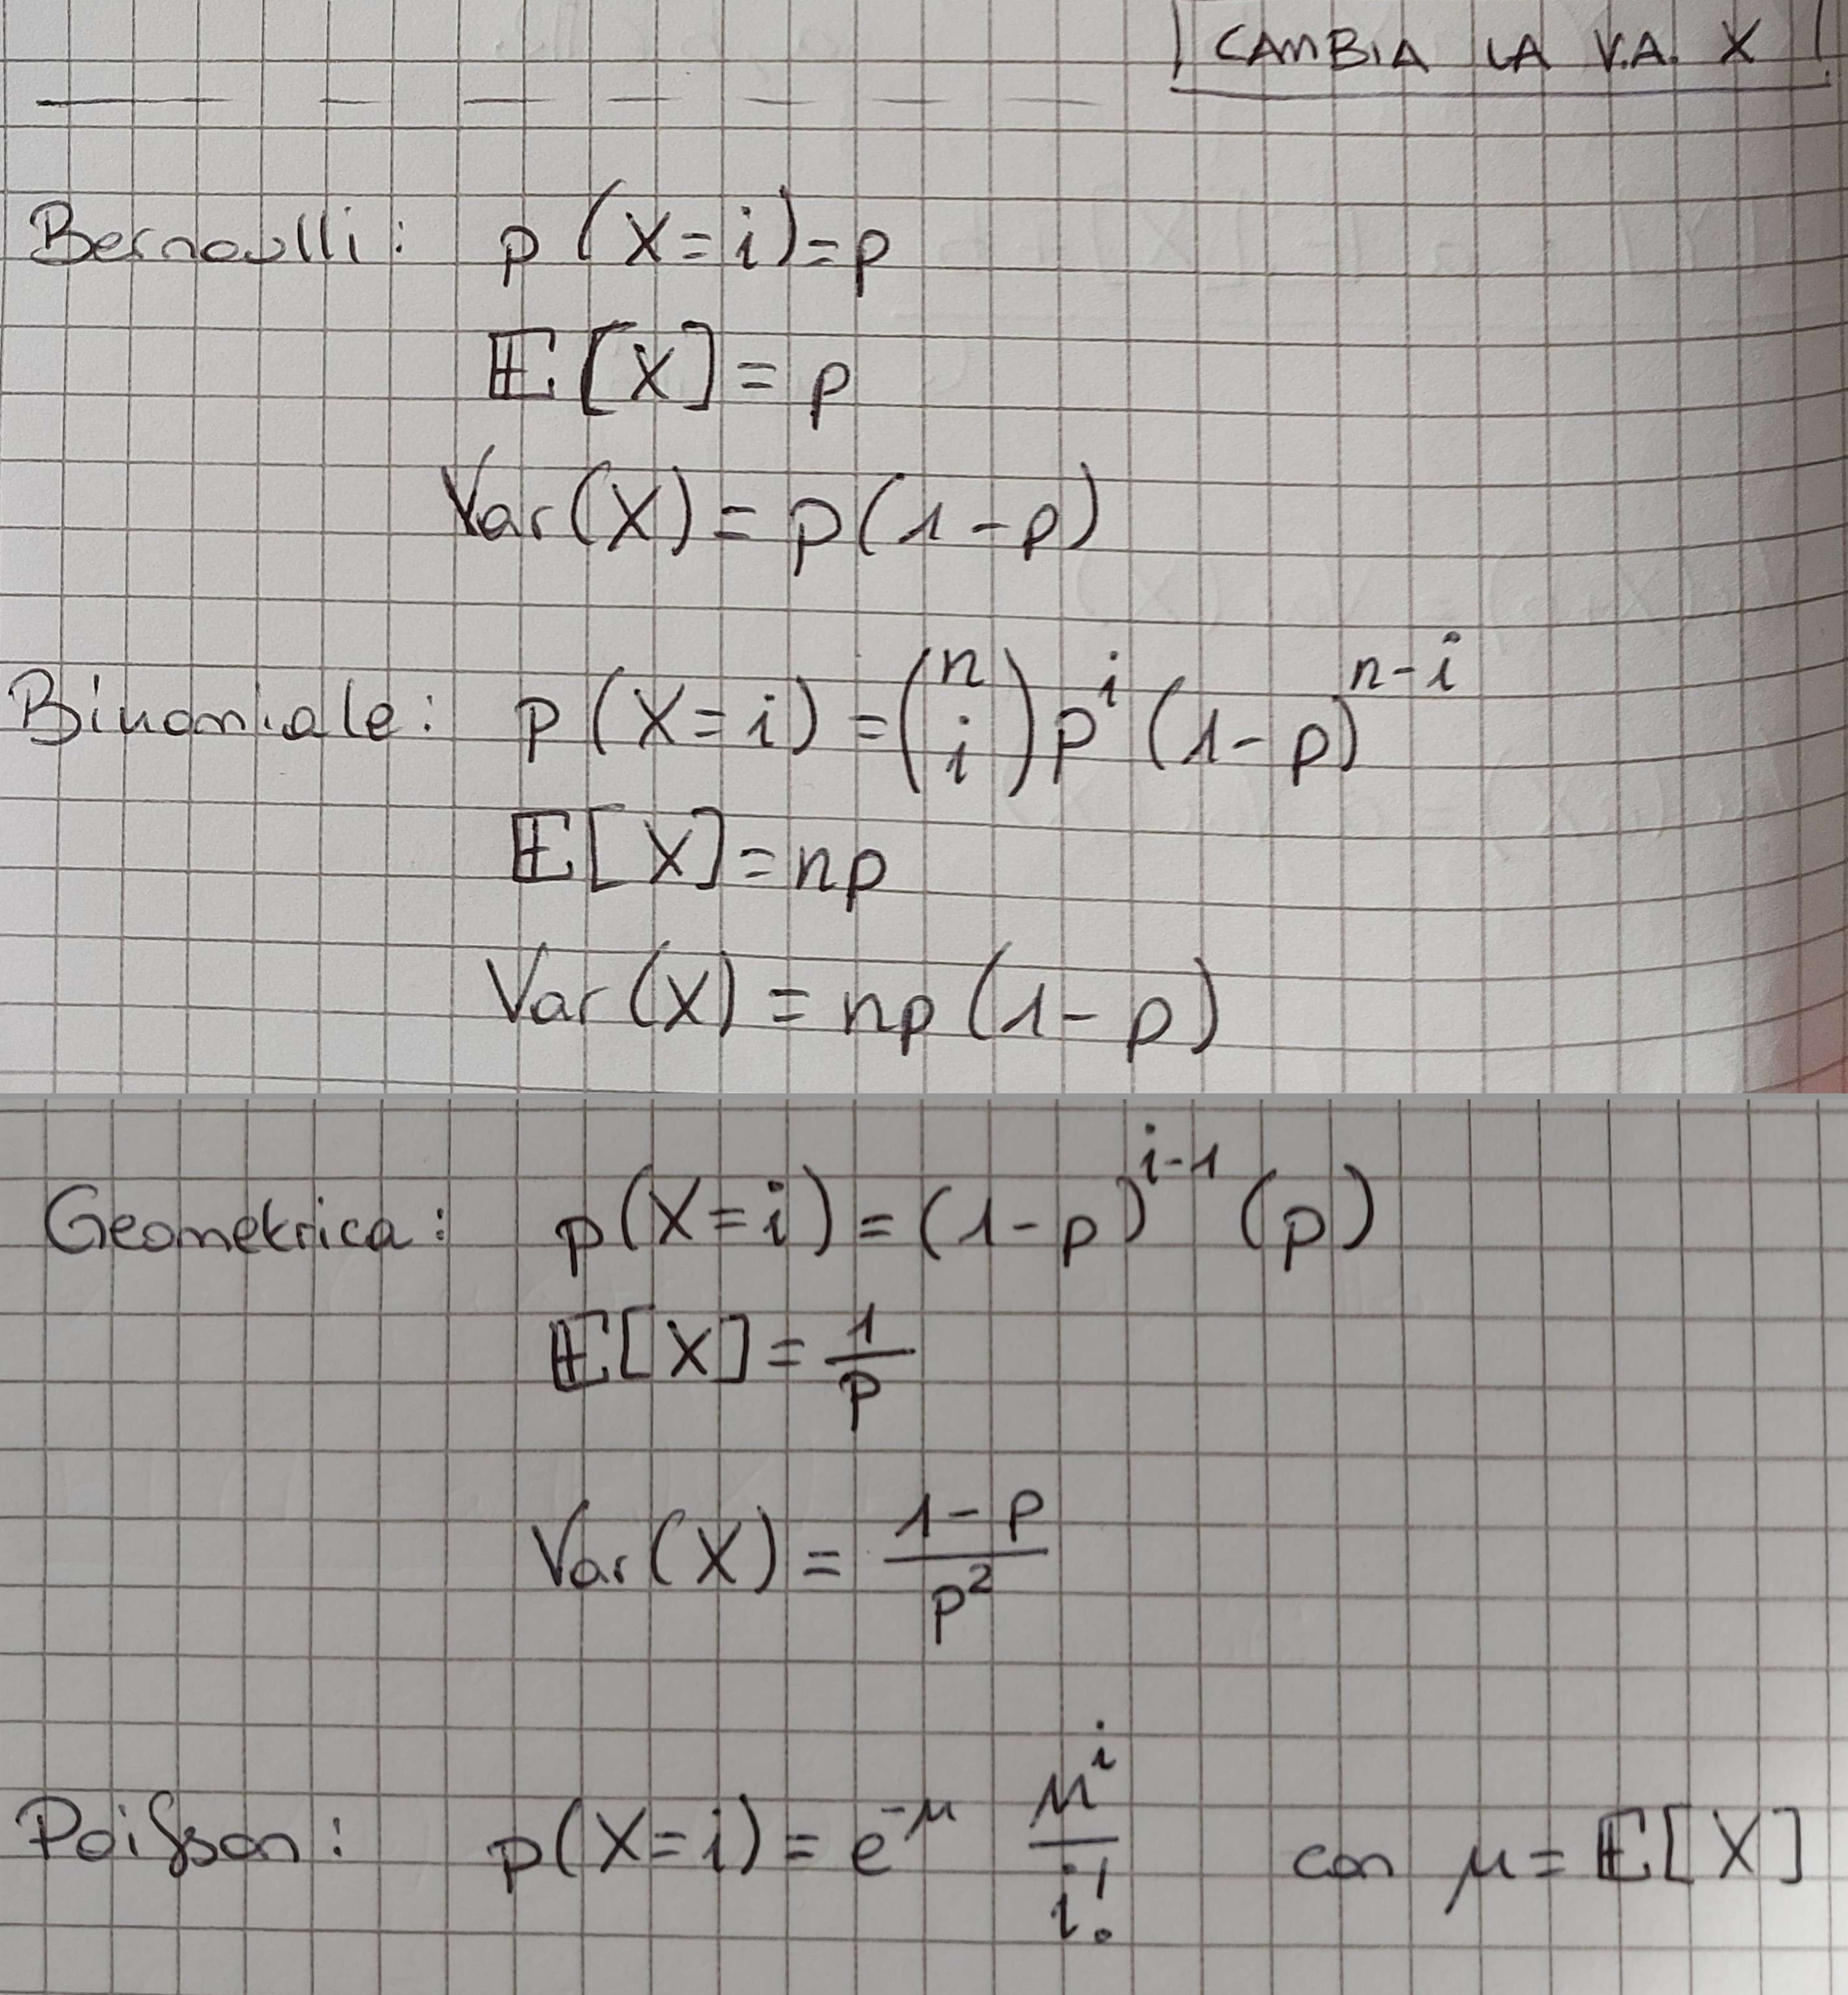 CAMBIA LA V.A. X !
Bernoulli: p(X=i)=p
𝔼[X]=p
Var(X)=p(1-p)
Binomiale: p(X=i)=(n i)p^i(1-p)^{n-i}
𝔼[X]=np
Var(X)=np(1-p)
Geometrica: p(X=i)=(1-p)^{i-1}(p)
𝔼[X]=1/p
Var(X)=(1-p)/p²
Poisson: p(X=i)=e^{-μ} μ^i/i! con μ=𝔼[X]